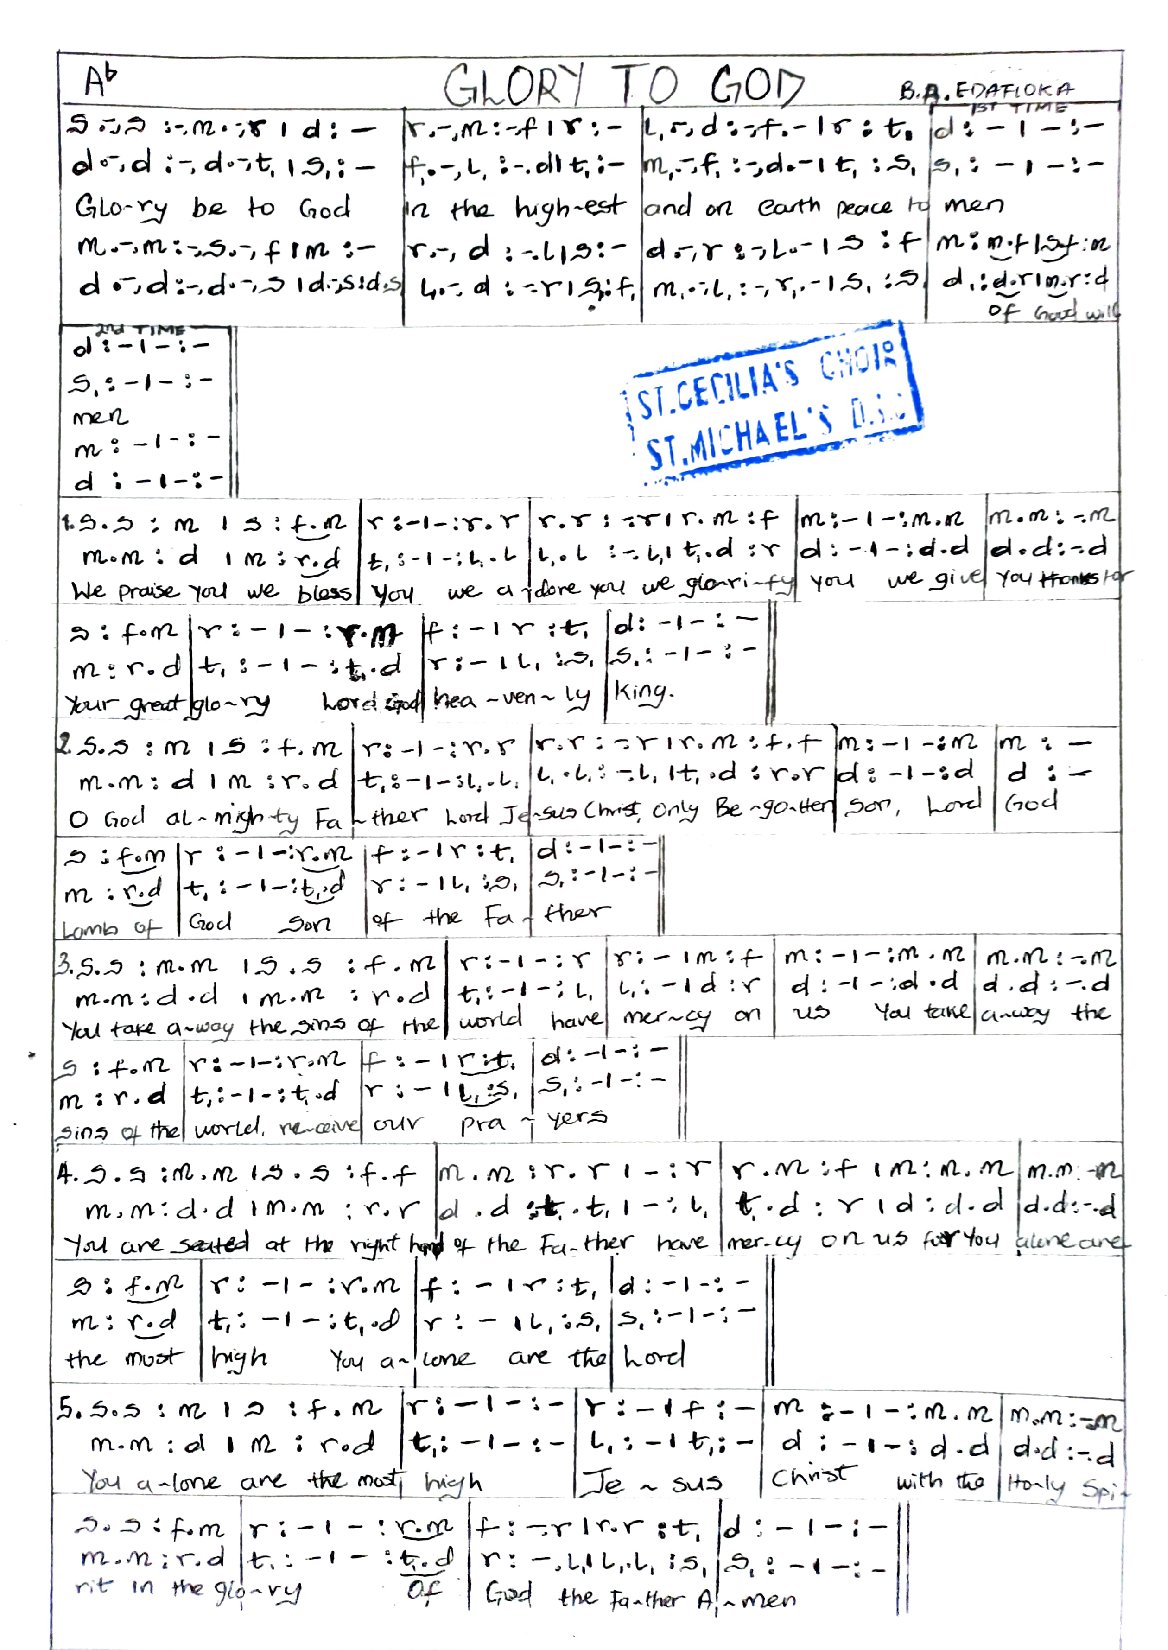 A♭ GLORY TO GOD B.A. EDAFIOKA
1ST TIME
s.-,s :-,m.-,r | d : - | r.-,m :-f | r : - | l,.-,d :-,f.- | r : t, | d : - | - : -
d.-,d :-,d.-,t, | s, : - | f,.-,l, :-.d | t, : - | m,.-,f, :-,d.- | t, : s, | s, : - | - : -
Glo~ry be to God | in the high-est | and on earth peace to men
m.-,m :-,s.-,f | m : - | r.-,d :-.l | s : - | d.-,r :-,l.- | s : f | m : m.f | s.f : m
d.-,d :-,d.-,s | d.-,s : d.s | l,.-,d :-r | s, : f, | m,.-,l, :-,r,.- | s, : s, | d, : d.r | m.r : d
Of Good will
2nd TIME
d : - | - : -
s, : - | - : -
men
m : - | - : -
d : - | - : -
ST. CECILIA'S CHOIR
ST. MICHAEL'S
1. s.s : m | s : f.m | r : - | - : r.r | r.r : -r | r.m : f | m : - | - : m.m | m.m : -.m
m.m : d | m : r.d | t, : - | - : l,.l | l,.l : -l, | t,.d : r | d : - | - : d.d | d.d : -d
We praise you we bless | you we a-dore you we glo-ri-fy you we give you thanks for
s : f.m | r : - | - : r.m | f : - | r : t, | d : - | - : -
m : r.d | t, : - | - : t,.d | r : - | l, : s, | s, : - | - : -
Your great glo~ry Lord God hea~ven~ly King.
2. s.s : m | s : f.m | r : - | - : r.r | r.r : -r | r.m : f.f | m : - | - : m | m : -
m.m : d | m : r.d | t, : - | - : l,.l, | l,.l, : -l, | t,.d : r.r | d : - | - : d | d : -
O God al~migh~ty Fa~ther Lord Je~sus Christ, only Be~go~tten son, Lord God
s : f.m | r : - | - : r.m | f : - | r : t, | d : - | - : -
m : r.d | t, : - | - : t,.d | r : - | l, : s, | s, : - | - : -
Lamb of God son of the Fa~ther
3. s.s : m.m | s.s : f.m | r : - | - : r | r : - | m : f | m : - | - : m.m | m.m : -.m
m.m : d.d | m.m : r.d | t, : - | - : l, | l, : - | d : r | d : - | - : d.d | d.d : -.d
You take a~way the sins of the world have mer~cy on us You take a~way the
s : f.m | r : - | - : r.m | f : - | r : t, | d : - | - : -
m : r.d | t, : - | - : t,.d | r : - | l, : s, | s, : - | - : -
sins of the world, re~ceive our pra~yers
4. s.s : m.m | s.s : f.f | m.m : r.r | - : r | r.m : f | m : m.m | m.m : -m
m.m : d.d | m.m : r.r | d.d : t,.t, | - : l, | t,.d : r | d : d.d | d.d : -.d
You are seated at the right hand of the Fa~ther have mer-cy on us for You alone are
s : f.m | r : - | - : r.m | f : - | r : t, | d : - | - : -
m : r.d | t, : - | - : t,.d | r : - | l, : s, | s, : - | - : -
the most high You a~lone are the Lord
5. s.s : m | s : f.m | r : - | - : - | r : - | f : - | m : - | - : m.m | m.m : -m
m.m : d | m : r.d | t, : - | - : - | l, : - | t, : - | d : - | - : d.d | d.d : -.d
You a~lone are the most high Je~sus Christ with the Ho~ly Spi~
s.s : f.m | r : - | - : r.m | f : -r | r.r : t, | d : - | - : -
m.m : r.d | t, : - | - : t,.d | r : -,l, | l,.l, : s, | s, : - | - : -
rit in the glo~ry of God the Fa~ther A~men